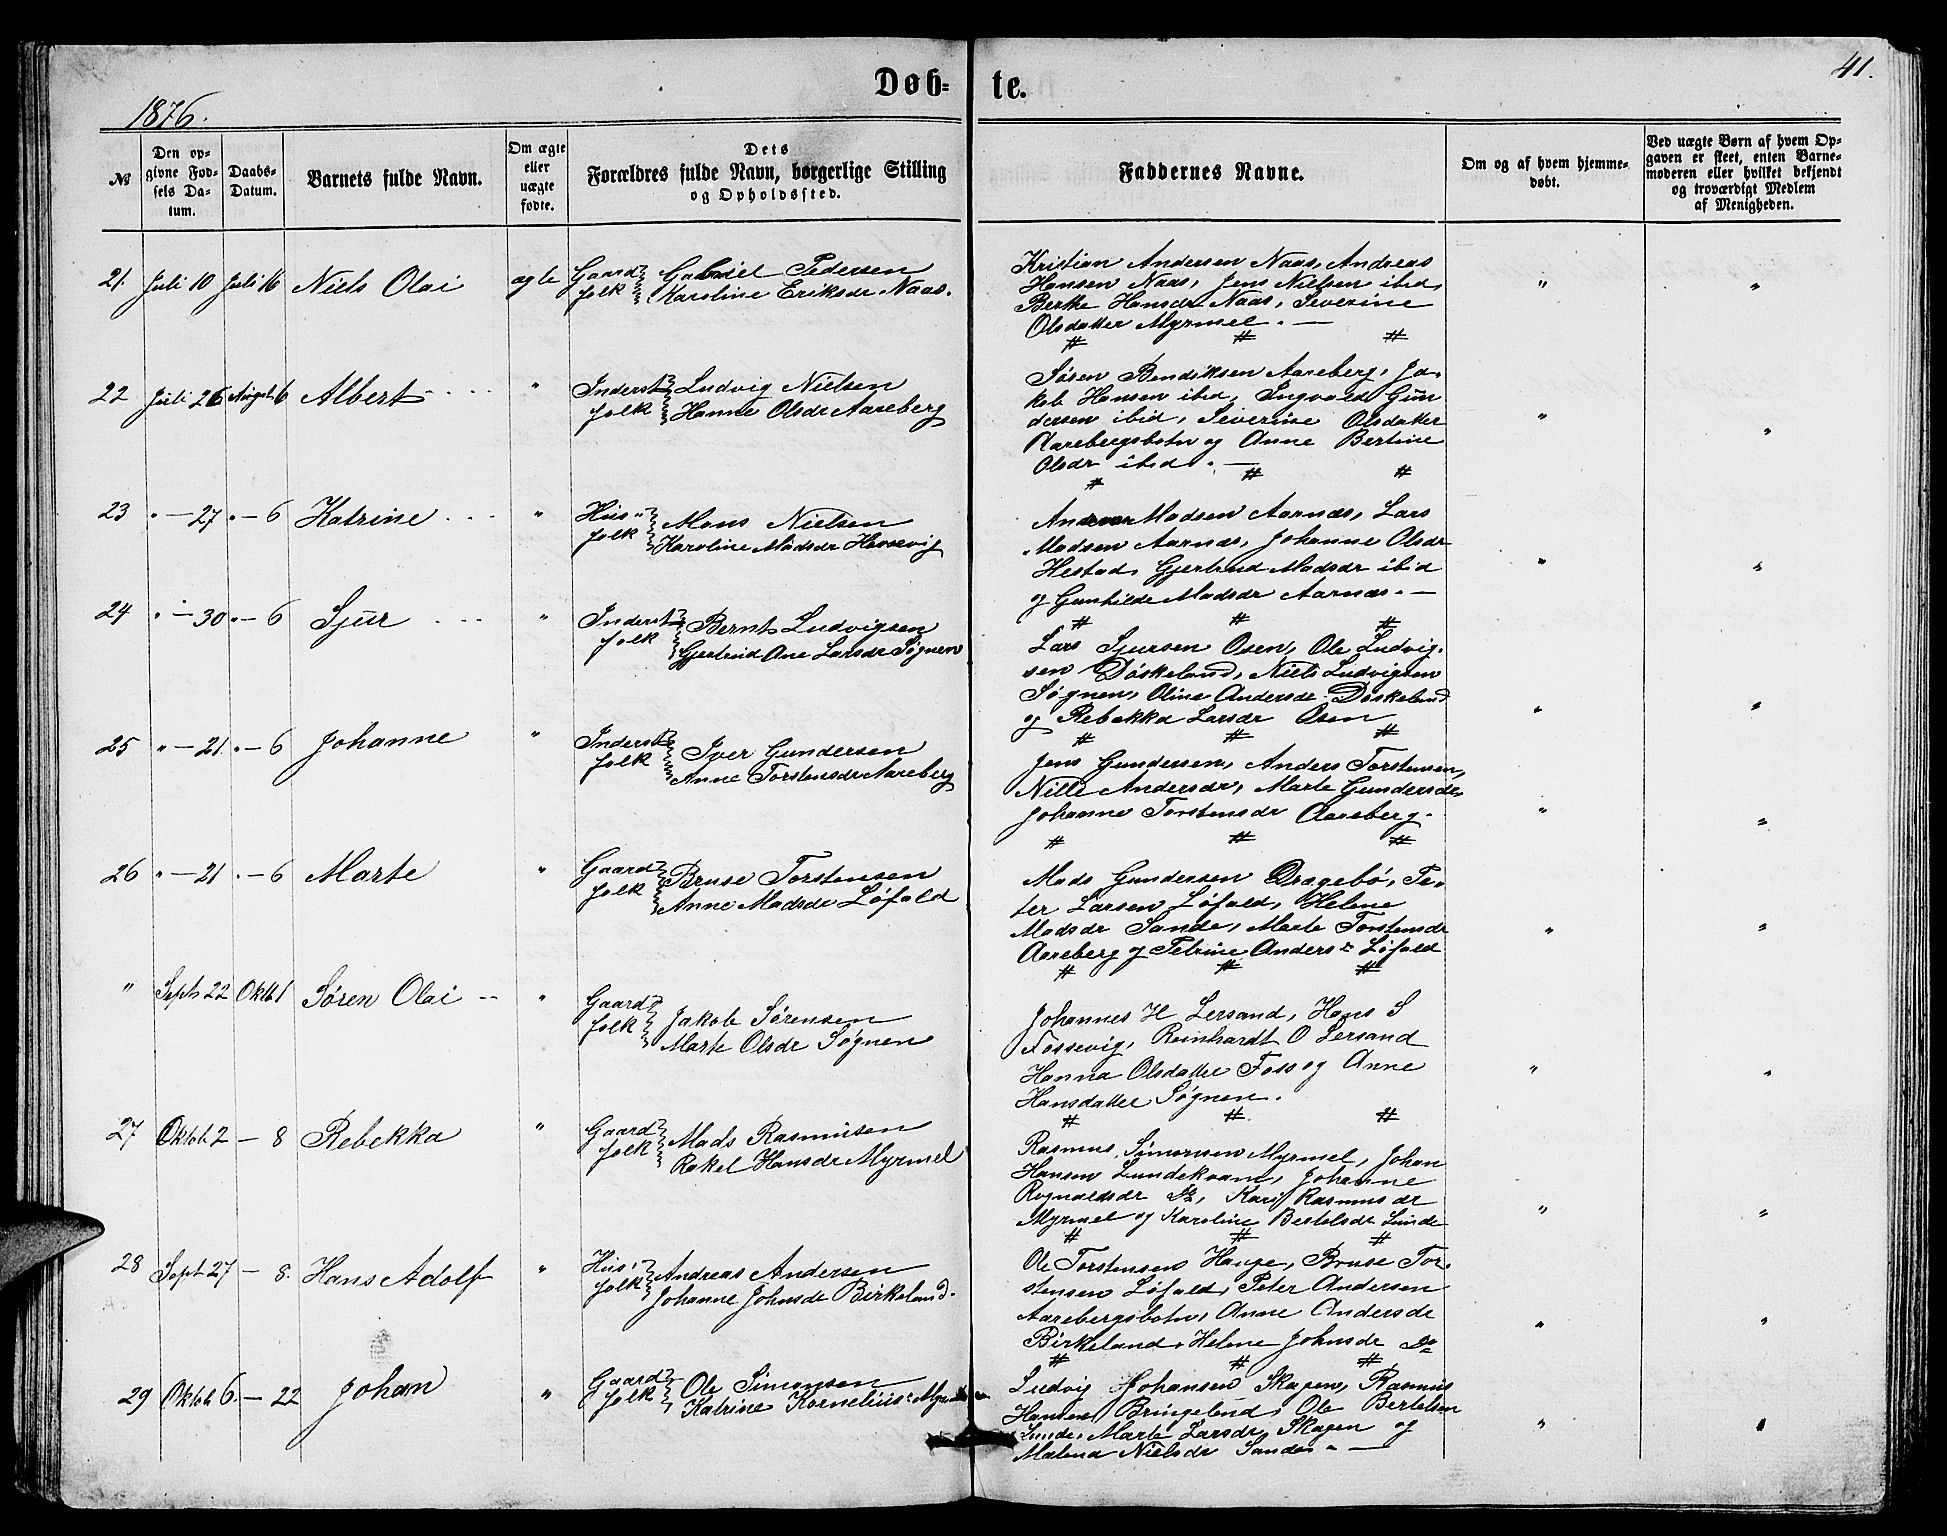 Døb-te.
41.
1876.
№ | Den opgivne Fødsels Datum. | Daabs-Datum. | Barnets fulde Navn. | Om ægte eller uægte fødte. | Dets Forældres fulde Navn, borgerlige Stilling og Opholdssted. | Faddernes Navne. | Om og af hvem hjemmedøbt. | Ved uægte Børn af hvem Opgaven er skeet, enten Barnemoderen eller hvilket bekjendt og troværdigt Medlem af Menigheden.
21. Juli 10 Juli 16 Niels Olai ægte Gaardfolk
Gabriel Pedersen
Karoline Eriksdr Naas.
Kristian Andersen Naas, Andreas
Hansen Naas, Jens Nielsen ibid,
Berthe Hansdr Naas, Severine
Olsdatter Myrmel. —
22 Juli 26 August 6 Albert " Inderstfolk
Ludvig Nielsen
Hanne Olsdr Aareberg
Søren Bendiksen Aareberg, Ja-
kob Hansen ibid, Ingvald Gun
dersen ibid, Severine Olsdatter
Aarebergsbotn og Anne Bertine
Olsdr ibid. —
23 " — 27 " — 6 Katrine " Husfolk
Mons Nielsen
Karoline Madsdr
Madsen Aarnæs, Lars
Madsen Aarnæs, Johanne Olsdr
Hestad, Gjertrud Madsdr ibid
og Gunhilde Madsdr Aarnæs. —
24 " — 30 " — 6 Sjur " Inderstfolk
Bernt Ludvigsen
Gjertrud Ane Larsdr Søgnen
Lars Sjursen Osen, Ole Ludvig-
sen Døskeland, Niels Ludvigsen
Søgnen, Oline Andersdr Døskeland
og Rebekka Larsdr Osen
25 " — 21. " — 6 Johanne " Inderstfolk
Iver Gundersen
Anne Torstensdr Aareberg
Jens Gundersen, Anders Torstensen,
Nille Andersdr, Marte Gundersdr,
Johanne Torstensdr Aareberg.
26 " — 21 " — 6 Marte " Gaardfolk
Bruse Torstensen
Anne Madsdr Løfald
Mads Gundersen Dragebø, Pe-
ter Larsen Løfald, Helene
Madsdr Sande, Marte Torstensdr
Aareberg og Petrine Andersdr Løfald
" Septr 22 Oktb 1 Søren Olai " Gaardfolk
Jakob Sørensen
Marte Olsdr Søgnen
Johannes H Lersand, Hans S
Fossevig, Reinhardt O Lersand
Hanna Olsdatter Foss og Anne
Hansdatter Søgnen.
27 Oktob. 2 — 8 Rebekka " Gaardfolk
Mads Rasmusen
Rakel Hansdr Myrmel
Rasmus Simonsen Myrmel, Johan
Hansen Lundekvam, Johanne
Rognaldsdr do, Kari Rasmusdr
Myrmel og Karoline Bertelsdr Lunde
28 Sept 27 — 8. Hans Adolf " Husfolk
Andreas Andersen
Johanne Johnsdr Birkeland.
Ole Torstensen Hauge, Bruse Tor-
stensen Løfald, Peter Andersen
Aarebergsbotn, Anne Andersdr
Birkeland, Helene Johnsdr Do
29 Oktob 6. — 22 Johan " Gaardfolk
Ole Simonsen
Katrine Kornelius
Ludvig Johansen Skagen, Rasmus
Hansen Bringeland, Ole Bertelsen
Lunde, Marte Larsdr Skagen og
Malena Nielsdr Sande. —